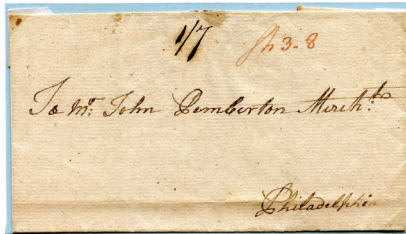 1/7 Sh 3.8
To Mr. John Pemberton Mercht.
Philadelphi